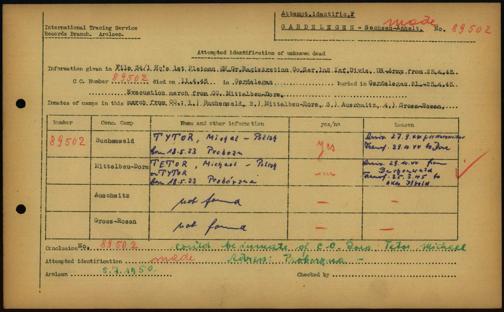 International Tracing Service
Records Branch. Arolsen.
Attempt.Identific.F
GARDELEGEN - Sachsen-Anhalt.
made
No. 89502
Attempted identification of unknown dead
Information given in File 24/1 Hq's 1st Platoon QM Gr.Registration Co. 2nd Inf.Divis. US-Army from 25.4.45.
C.C. Number 89502 died on 11.4.45 in Gardelegen buried in Gardelegen 21.-25.4.45
Evacuation march from CC. Mittelbau-Dora.
Inmates of camps in this march from CC. 1.) Buchenwald, 2.) Mittelbau-Dora, 3.) Auschwitz, 4.) Gross-Rosen.
Number Conc. Camp Name and other information yes/no Reason
89502 Buchenwald TYTOR, Michael - Polish
born 18.5.23
yes
Mittelbau-Dora TETOR, Michael - Polish
or TYTOR
born 18.5.23
Auschwitz not found
Gross-Rosen not found
Conclusion No. 89502 could be inmate of C.C. Dora Tetor Michael
Attempted identification made
Arolsen 5.7.1950. Checked by